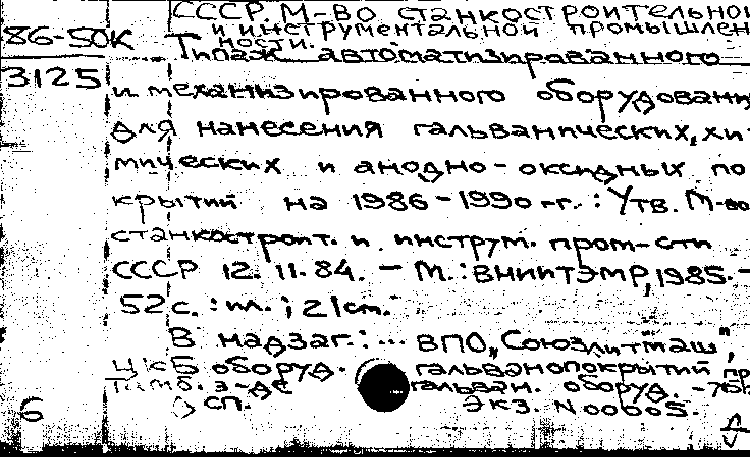 СССР. М-во станкостроительной
86-50К и инструментальной промышлен
ности.
Типаж автоматизированного
3125
и механизированного оборудования
для нанесения гальванических, хи-
мических и анодно-оксидных по
крытий на 1986-1990 гг. : Утв. М-во
станкостроит. и инструм. пром-сти
СССР 12.11.84. - М. : ВНИИТЭМР, 1985. -
52 с. : ил. ; 21 см.
В надзаг. : ... ВПО „Союзлитмаш",
ЦКБ оборуд. гальванопокрытий пр
Тамб. з-де гальван. оборуд. -
6 сп. Экз. N 00005.